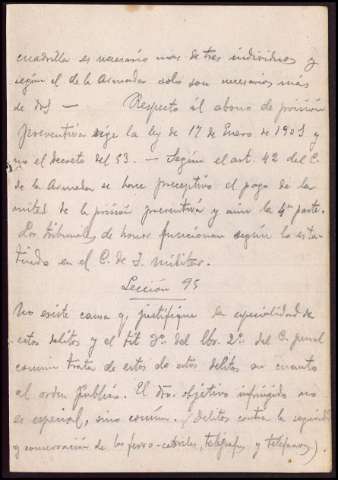 cuadrilla es necesario mas de tres individuos y
según el de la Armada solo son necesarios más
de dos — Respecto al abono de prisión
preventiva rige la ley de 17 de Enero de 1901 y
no el decreto del 53. — Según el art. 42 del C.
de la Armada se hace preceptivo el pago de la
mitad de la prisión preventiva y aun la 4ª parte.
Los tribunales de honor funcionan según lo esta-
tuido en el C. de J. Militar.
Lección 95
No existe causa q. justifique la especialidad de
estos delitos y el tit 3º. del lbr. 2º. del C. penal
común trata de estos delitos en cuanto
al orden público. El dro. objetivo infringido no
es especial, sino común. (Delitos contra la seguridad
y conservación de los ferro-carriles, telégrafos y teléfonos).